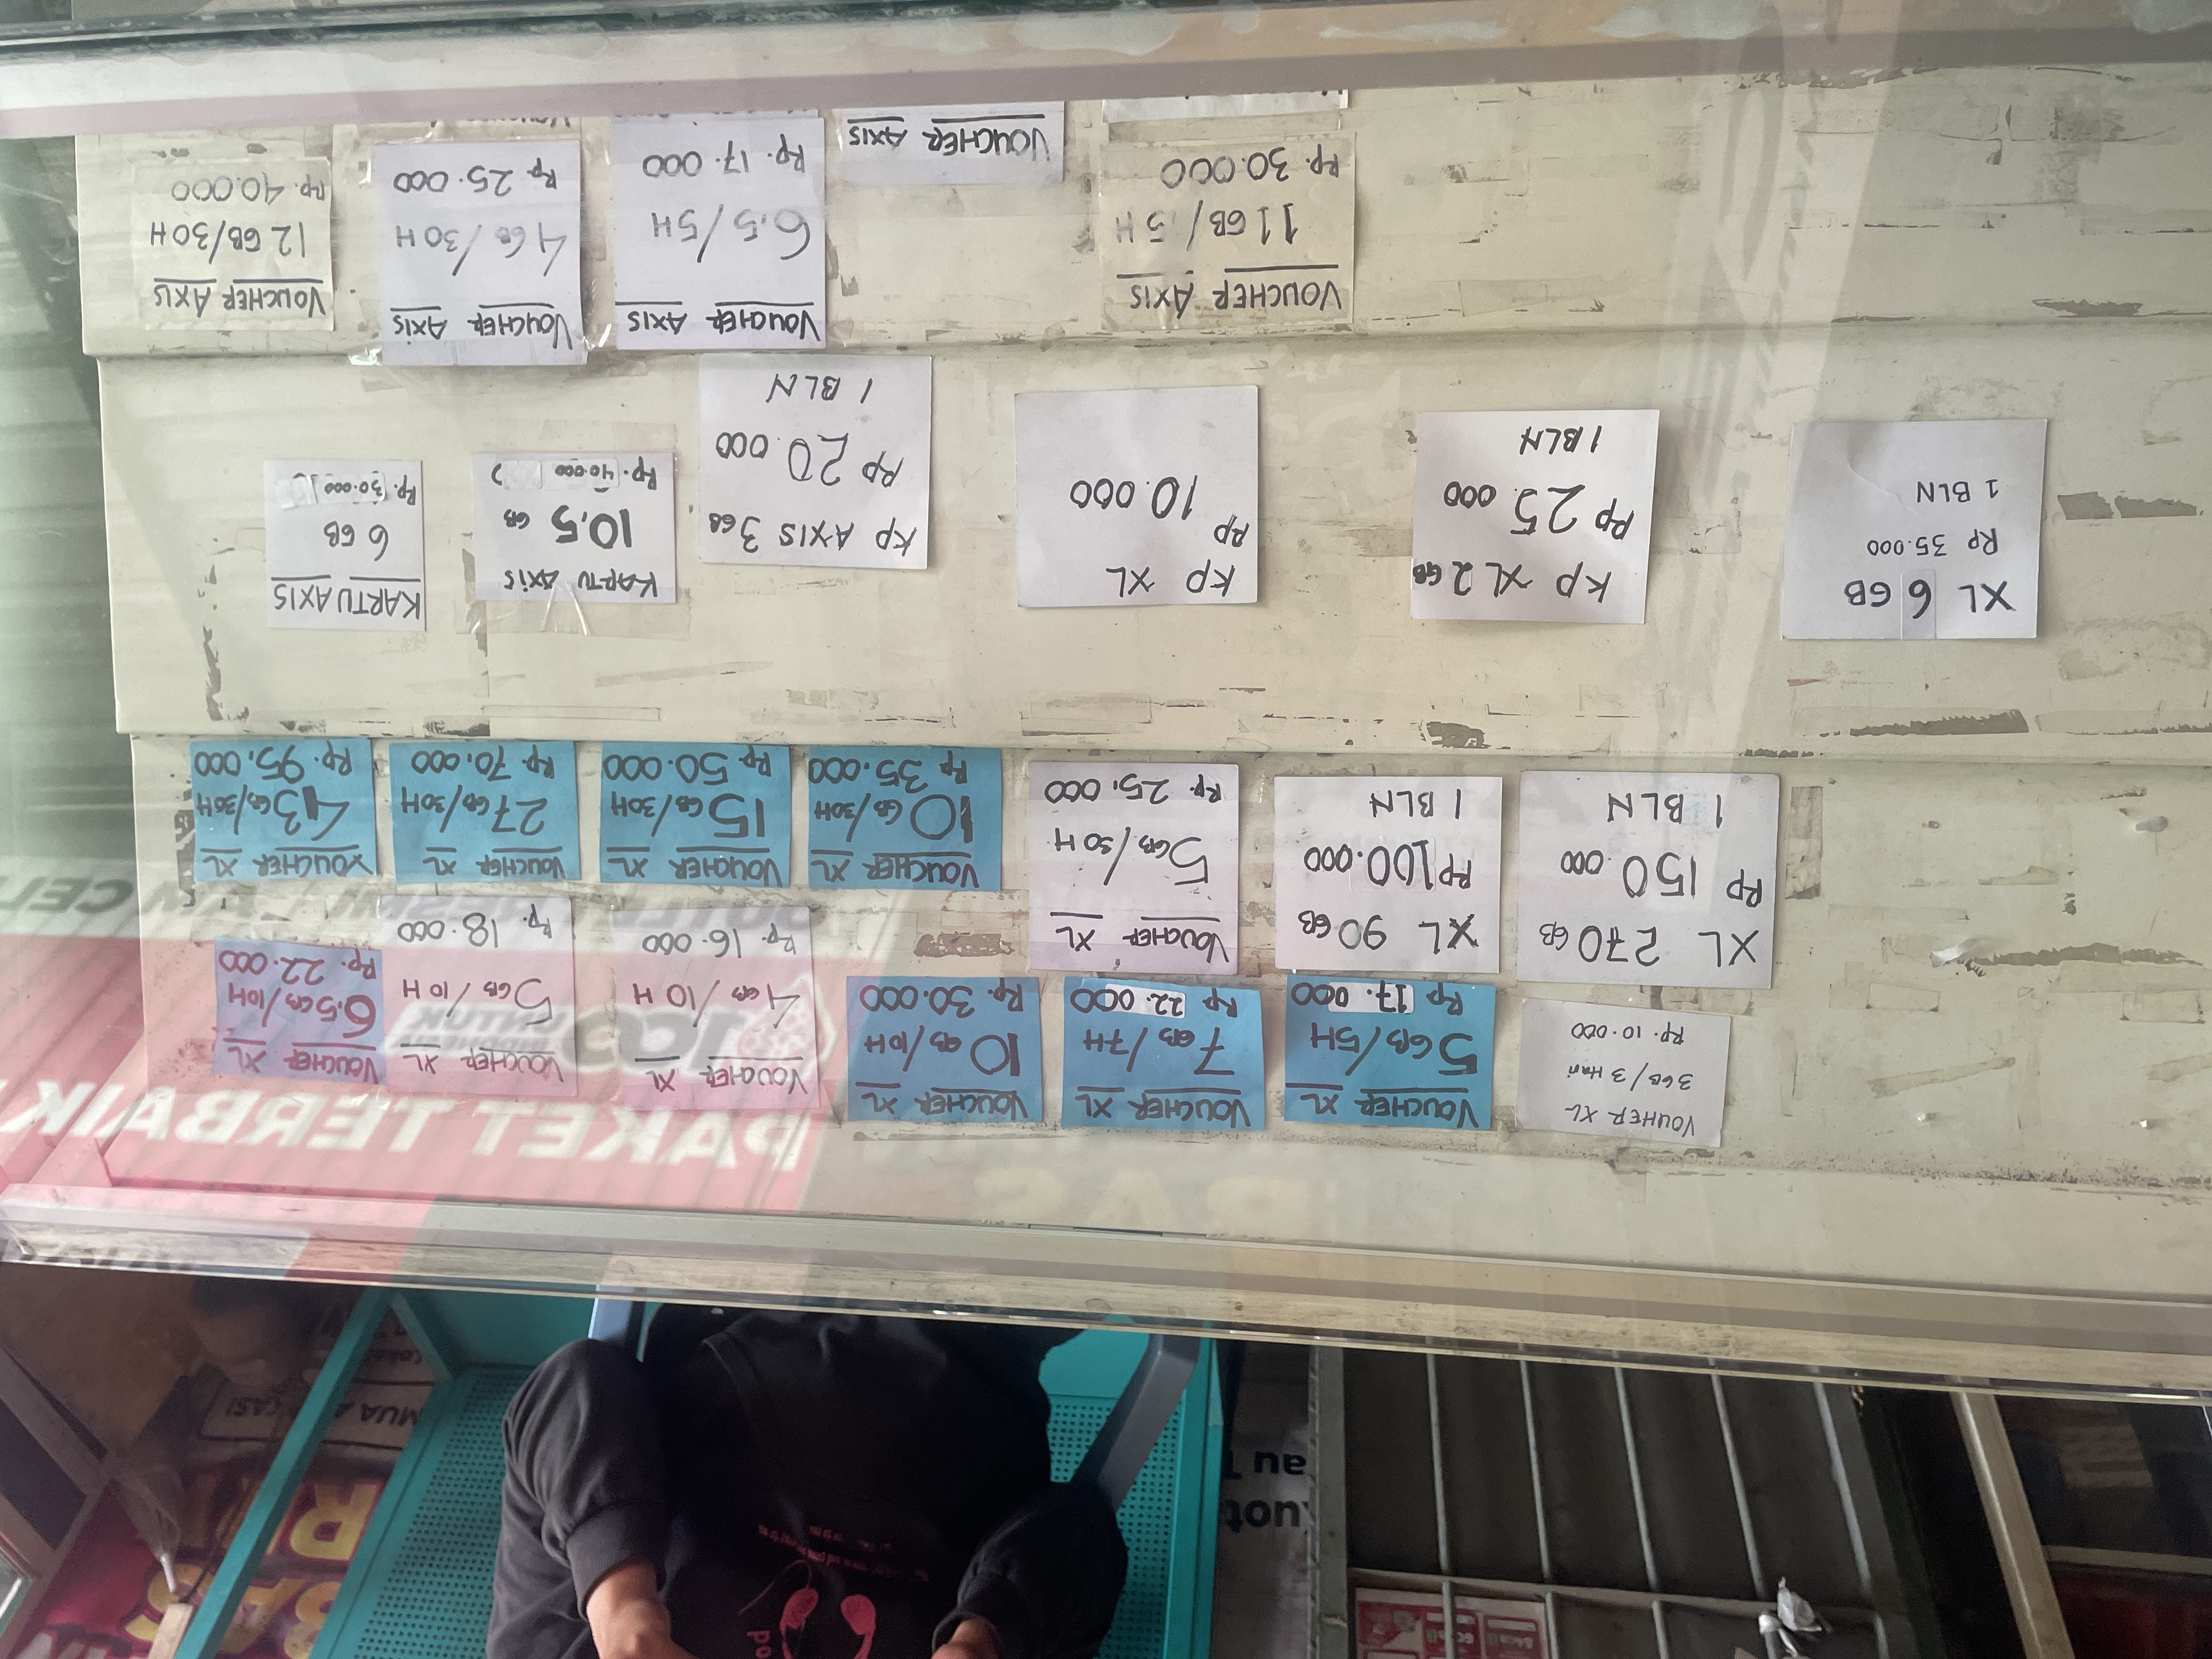 VOUHER XL
3 GB / 3 Hari
Rp. 10.000
VOUCHER XL
5 GB/5H
Rp 17.000
VOUCHER XL
7 GB/7H
Rp 22.000
VOUCHER XL
10 GB/10H
Rp. 30.000
VOUCHER XL
4 GB/10 H
Rp. 16.000
VOUCHER XL
5 GB/10 H
Rp. 18.000
VOUCHER XL
6.5 GB/10H
Rp. 22.000
XL 270 GB
Rp 150.000
1 BLN
XL 90 GB
Rp 100.000
1 BLN
VOUCHER XL
5 GB/30 H
Rp. 25.000
VOUCHER XL
10 GB/30H
Rp 35.000
VOUCHER XL
15 GB/30H
Rp 50.000
VOUCHER XL
27 GB/30H
Rp 70.000
VOUCHER XL
43 GB/30H
Rp. 95.000
XL 6 GB
Rp 35.000
1 BLN
KP XL 2 GB
Rp 25.000
1 BLN
KP XL
Rp 10.000
KP AXIS 3 GB
Rp 20.000
1 BLN
KARTU AXIS
10,5 GB
Rp. 40.000
KARTU AXIS
6 GB
Rp. 30.000
VOUCHER AXIS
11 GB / 5 H
Rp. 30.000
VOUCHER AXIS
VOUCHER AXIS
6,5/5H
Rp. 17.000
VOUCHER AXIS
4 GB/30H
Rp 25.000
VOUCHER AXIS
12 GB/30H
Rp. 40.000
PAKET TERBAIK
UNTUK